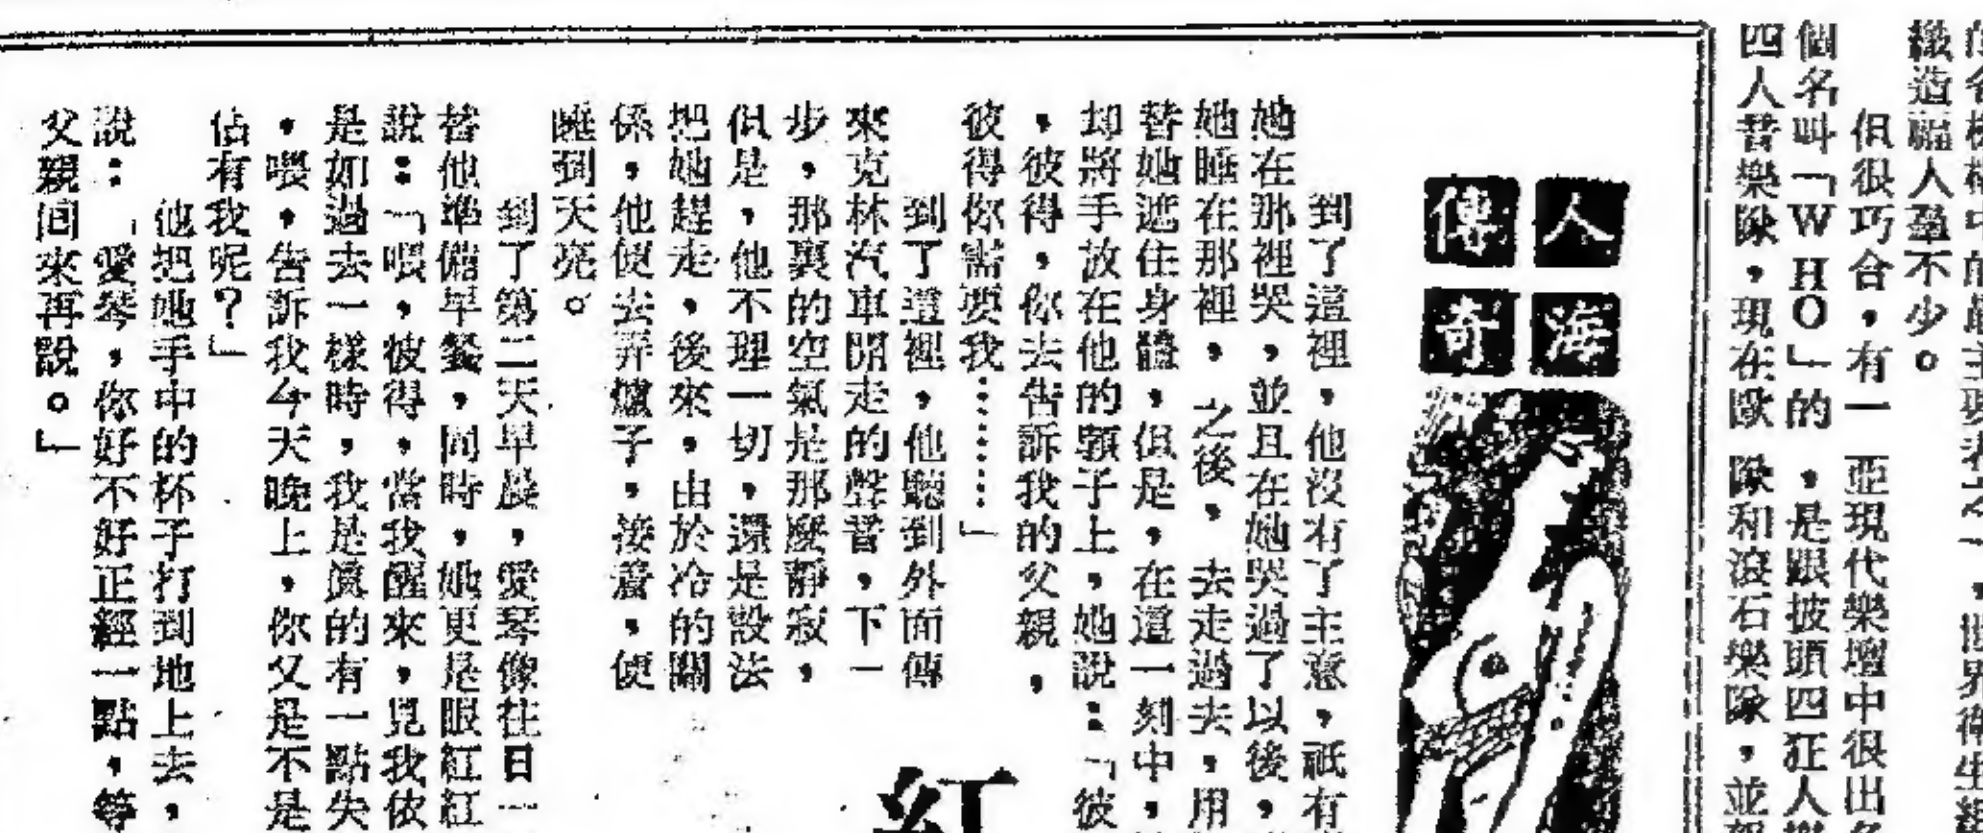 織造福人羣不少。
但很巧合，有一
個名叫「WHO」的
四人昔樂隊，現在歐
亞現代樂壇中很出
，是跟披頭四狂人
隊和滾石樂隊，並
人海傳奇
紅
到了這裡，他沒有了主意，祇有
她在那裡哭，並且在她哭過了以後，
她睡在那裡，之後，去走過去，用
替她遮住身體，但是，在這一刻中，
却將手放在他的頸子上，她說：「彼
，彼得，你去告訴我的父親，
彼得你需要我⋯⋯」
到了這裡，他聽到外面傳
來克林汽車開走的聲音，下一
步，那裏的空氣是那麼靜寂，
但是，他不理一切，還是設法
把她趕走，後來，由於冷的關
係，他便去弄爐子，接着，便
睡到天亮。
到了第二天早晨，愛琴像往日一
替他準備早餐，同時，她更是眼紅紅
說：「喂，彼得，當我醒來，見我依
是如過去一樣時，我是眞的有一點失
，喂，告訴我今天晚上，你父是不是
佔有我呢？」
他把她手中的杯子打到地上去，
說：「愛琴，你好不好正經一點，等
父親回來再說。」